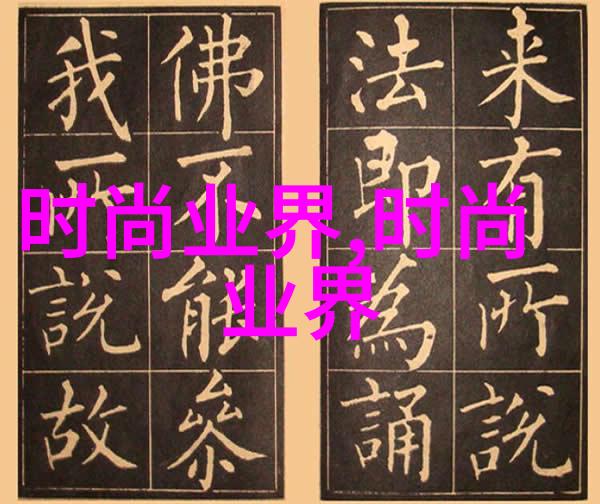 时尚业界,时尚
业界
来有所說
法即為誦
佛不能參
我所說故